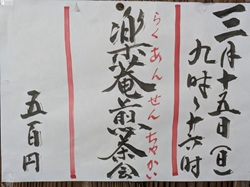 三月十五日(日)
九時〜十六時
らくあんせんちゃかい
楽菴煎茶会
五百円